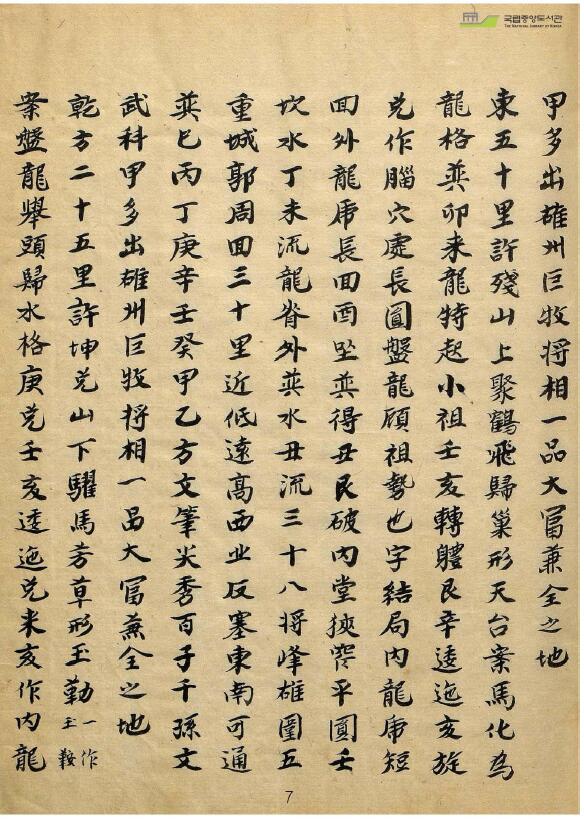 국립중앙도서관
THE NATIONAL LIBRARY OF KOREA
甲多出雄州巨牧将相一品大富兼全之地
東五十里許殘山上聚鶴飛歸巢形天台案馬化為
龍格巽卯来龍特起小祖壬亥轉軆艮辛逶迤亥旋
兌作腦穴處長圓盤龍顧祖勢也字結局內龍虎短
回外龍虎長回酉坐巽得丑艮破內堂狹窄平圓壬
坎水丁未流龍脊外巽水丑流三十八将峰雄圍五
重城郭周回三十里近低遠高西北反塞東南可通
巽巳丙丁庚辛壬癸甲乙方文筆尖秀百子千孫文
武科甲多出雄州巨牧将相一品大富兼全之地
乾方二十五里許坤兌山下驟馬芳草形玉勒一作玉鞍
案盤龍舉頭歸水格庚兌壬亥逶迤兌来亥作內龍
7